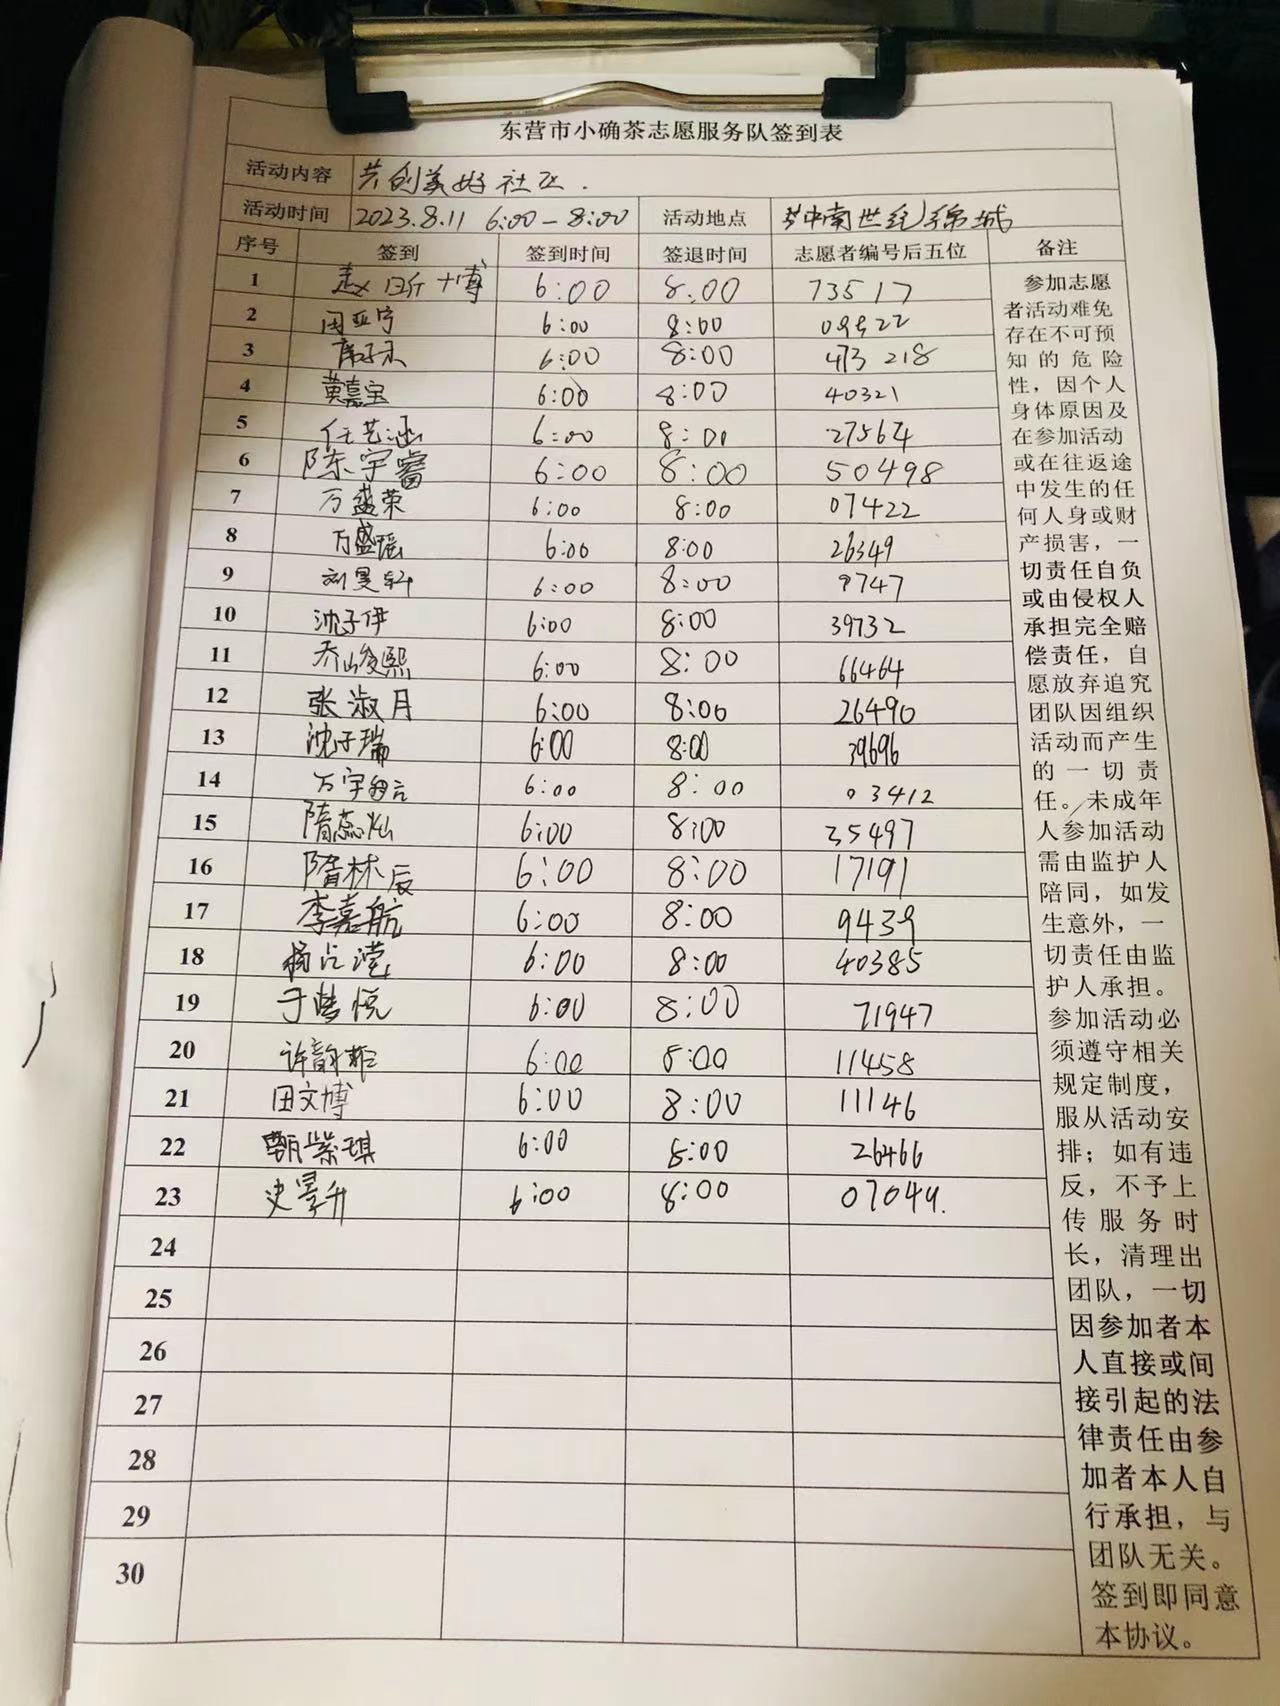 东营市小确茶志愿服务队签到表
活动内容 共创美好社区.
活动时间 2023.8.11 6:00-8:00 活动地点 中南世纪锦城
序号 签到 签到时间 签退时间 志愿者编号后五位 备注
1 6:00 8:00 73517
2 田亚宁 6:00 8:00
3 6:00 8:00 473218
4 黄嘉宝 6:00 8:00 40321
5 任艺涵 6:00 8:00 27564
6 陈宇睿 6:00 8:00 50498
7 万盛荣 6:00 8:00 07422
8 万盛瑶 6:00 8:00 26349
9 刘昊轩 6:00 8:00
10 沈子伊 6:00 8:00 39732
11 乔峻熙 6:00 8:00 66464
12 张淑月 6:00 8:00 26490
13 沈子瑞 6:00 8:00 39696
14 万宇 6:00 8:00 03412
15 隋蕊灿 6:00 8:00 35497
16 隋林辰 6:00 8:00 17191
17 李嘉航 6:00 8:00 9439
18 6:00 8:00 40385
19 于梦悦 6:00 8:00 71947
20 许韵菲 6:00 8:00 11458
21 田文博 6:00 8:00 11146
22 甄紫琪 6:00 8:00 26466
23 史墨升 6:00 8:00 07044.
24
25
26
27
28
29
30
参加志愿
者活动难免
存在不可预
知的危险
性，因个人
身体原因及
在参加活动
或在往返途
中发生的任
何人身或财
产损害，一
切责任自负
或由侵权人
承担完全赔
偿责任，自
愿放弃追究
团队因组织
活动而产生
的一切责
任。未成年
人参加活动
需由监护人
陪同，如发
生意外，一
切责任由监
护人承担。
参加活动必
须遵守相关
规定制度，
服从活动安
排；如有违
反，不予上
传服务时
长，清理出
团队，一切
因参加者本
人直接或间
接引起的法
律责任由参
加者本人自
行承担，与
团队无关。
签到即同意
本协议。